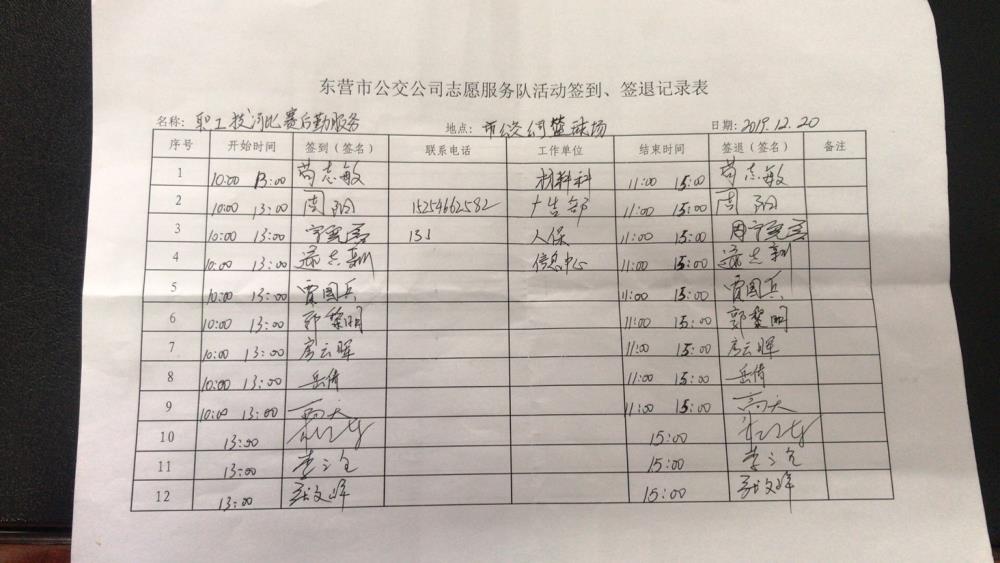 东营市公交公司志愿服务队活动签到、签退记录表
名称: 职工技河比赛后勤服务 地点: 市公交公司篮球场 日期: 2019.12.20
序号 开始时间 签到(签名) 联系电话 工作单位 结束时间 签退(签名) 备注
1 10:00 13:00 苟志敏 材料科 11:00 15:00 苟志敏
2 10:00 13:00 周阳 15254662582 广告部 11:00 15:00 周阳
3 10:00 13:00 人保 11:00 15:00
4 10:00 13:00 信息中心 11:00 15:00
5 10:00 13:00 贾国兵 11:00 15:00 贾国兵
6 10:00 13:00 郭黎明 11:00 15:00 郭黎明
7 10:00 13:00 房云晖 11:00 15:00 房云晖
8 10:00 13:00 岳倩 11:00 15:00 岳倩
9 10:00 13:00 11:00 15:00
10 13:00 15:00
11 13:00 15:00
12 13:00 张文峰 15:00 张文峰